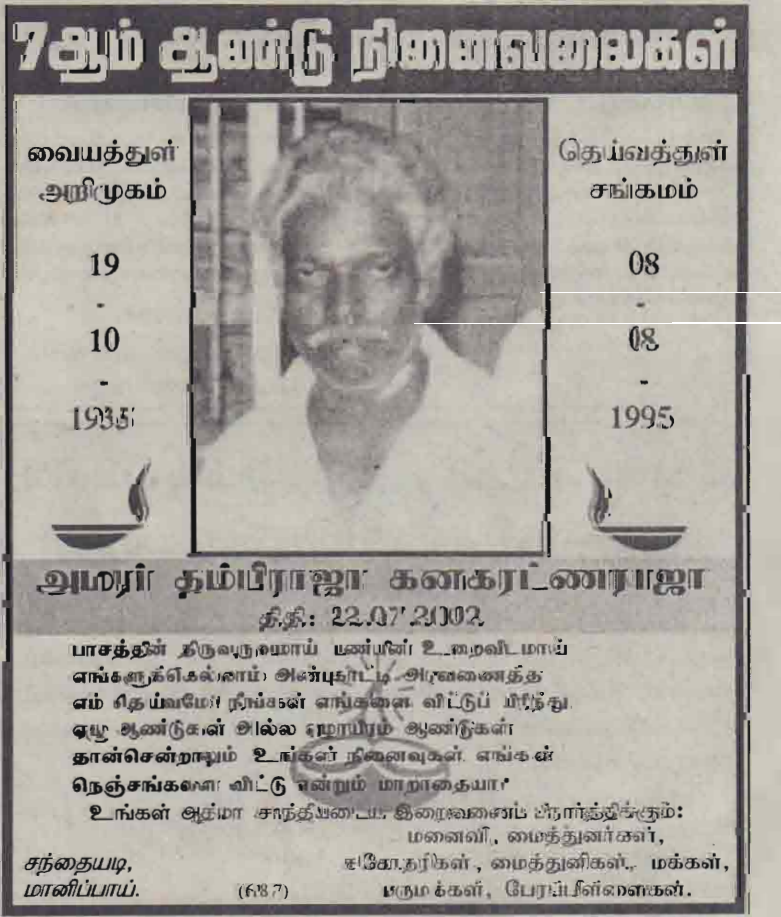 7ஆம் ஆண்டு நினைவலைகள்
வையத்துள்
அறிமுகம்
19
-
10
-
1935
தெய்வத்துள்
சங்கமம்
08
-
08
-
1995
அமரர் தம்பிராஜா கனகரட்ணராஜா
திதி: 22.07.2002
பாசத்தின் திருவுருவமாய் பண்பின் உறைவிடமாய்
எங்களுக்கெல்லாம் அன்புகாட்டி அரவணைத்த
எம் தெய்வமே நீங்கள் எங்களை விட்டுப் பிரிந்து
ஏழு ஆண்டுகள் அல்ல ஏழாயிரம் ஆண்டுகள்
தான்சென்றாலும் உங்கள் நினைவுகள் எங்கள்
நெஞ்சங்களை விட்டு என்றும் மாறாதையா
உங்கள் ஆத்மா சாந்தியடைய இறைவனைப் பிரார்த்திக்கும்:
மனைவி, மைத்துனர்கள்,
சகோதரிகள், மைத்துனிகள், மக்கள்,
மருமக்கள், பேரப்பிள்ளைகள்.
சந்தையடி,
மானிப்பாய்.
(687)